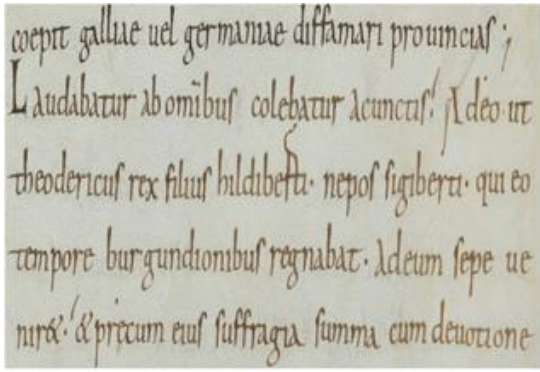 coepit galliae uel germaniae diffamari prouincias;
Laudabatur ab om̅ibus colebatur a cunctis. Adeo ut
theodericus rex filius hildiberti. nepos sigiberti. qui eo
tempore burgundionibus regnabat. Ad eum sepe ue
nir&. & pręcum eius suffragia summa cum deuotione